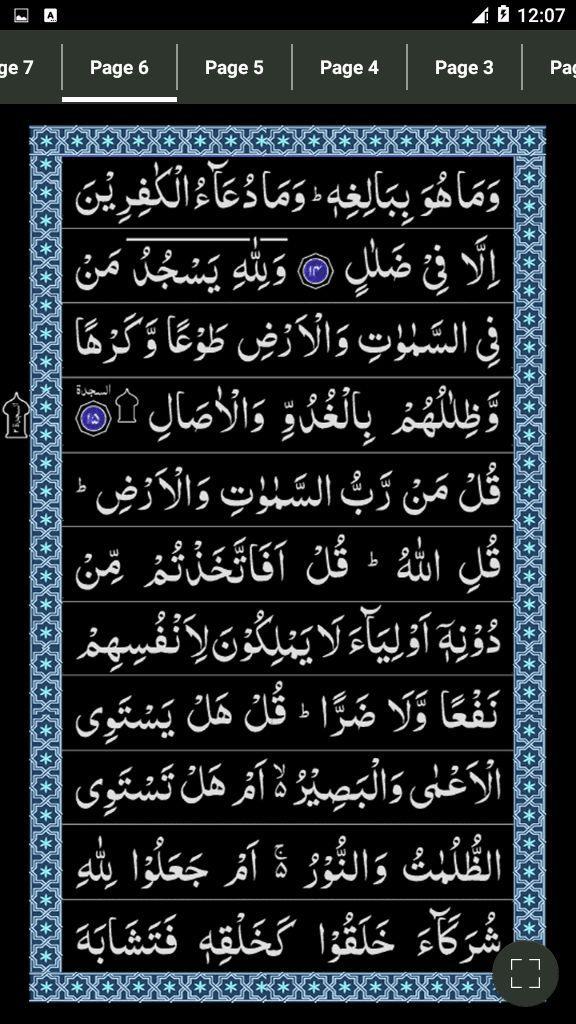 12:07
ge 7 Page 6 Page 5 Page 4 Page 3 Pag
وَمَا هُوَ بِبَالِغِهٖ ؕ وَمَا دُعَآءُ الْكٰفِرِيْنَ
اِلَّا فِيْ ضَلٰلٍ ۱۴ وَلِلّٰهِ يَسْجُدُ مَنْ
فِي السَّمٰوٰتِ وَالْاَرْضِ طَوْعًا وَّكَرْهًا
وَّظِلٰلُهُمْ بِالْغُدُوِّ وَالْاٰصَالِ السجدة ۱۵
قُلْ مَنْ رَّبُّ السَّمٰوٰتِ وَالْاَرْضِ ؕ
قُلِ اللّٰهُ ؕ قُلْ اَفَاتَّخَذْتُمْ مِّنْ
دُوْنِهٖٓ اَوْلِيَآءَ لَا يَمْلِكُوْنَ لِاَنْفُسِهِمْ
نَفْعًا وَّلَا ضَرًّا ؕ قُلْ هَلْ يَسْتَوِى
الْاَعْمٰى وَالْبَصِيْرُ ۙ۬ اَمْ هَلْ تَسْتَوِى
الظُّلُمٰتُ وَالنُّوْرُ ۬ۚ اَمْ جَعَلُوْا لِلّٰهِ
شُرَكَآءَ خَلَقُوْا كَخَلْقِهٖ فَتَشَابَهَ